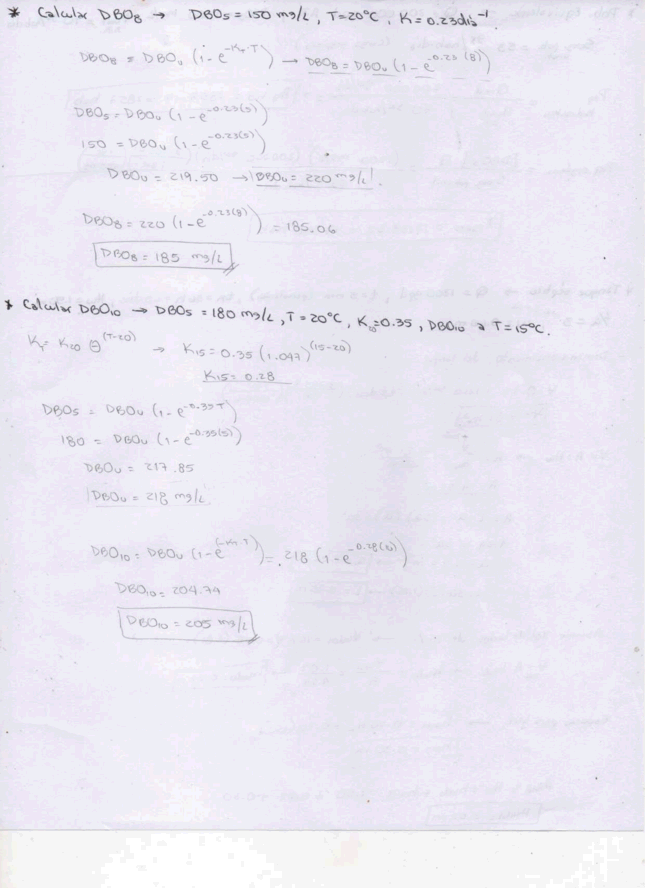 * Calcular DBO₈ → DBO₅ = 150 mg/L, T=20°C, K = 0.23 dia⁻¹
DBO₈ = DBOᵤ (1-e^(-K_T·T)) → DBO₈ = DBOᵤ (1-e^(-0.23(8)))
DBO₅ = DBOᵤ (1-e^(-0.23(5)))
150 = DBOᵤ (1-e^(-0.23(5)))
DBOᵤ = 219.50 → DBOᵤ = 220 mg/L.
DBO₈ = 220 (1-e^(-0.23(8))) = 185.06
DBO₈ = 185 mg/L
* Calcular DBO₁₀ → DBO₅ = 180 mg/L, T = 20°C, K=0.35, DBO₁₀ a T=15°C.
K_T = K₂₀ θ^(T-20) → K₁₅ = 0.35 (1.047)^(15-20)
K₁₅ = 0.28
DBO₅ = DBOᵤ (1-e^(-0.35T))
180 = DBOᵤ (1-e^(-0.35(5)))
DBOᵤ = 217.85
DBOᵤ = 218 mg/L
DBO₁₀ = DBOᵤ (1-e^(-K_T·T)) = 218 (1-e^(-0.28(10)))
DBO₁₀ = 204.74
DBO₁₀ = 205 mg/L